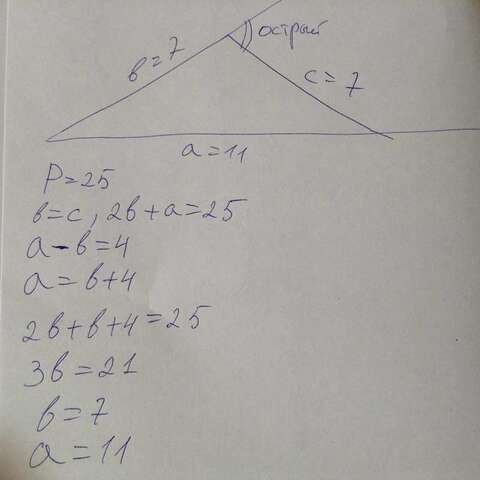 острый
в=7
c=7
a=11
P=25
в=c, 2в+a=25
a-в=4
a=в+4
2в+в+4=25
3в=21
в=7
a=11